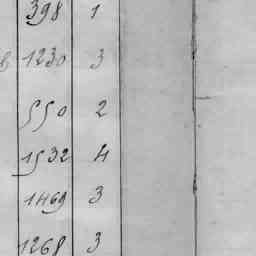 398 1
в 1230 3
550 2
1532 4
1469 3
1268 3